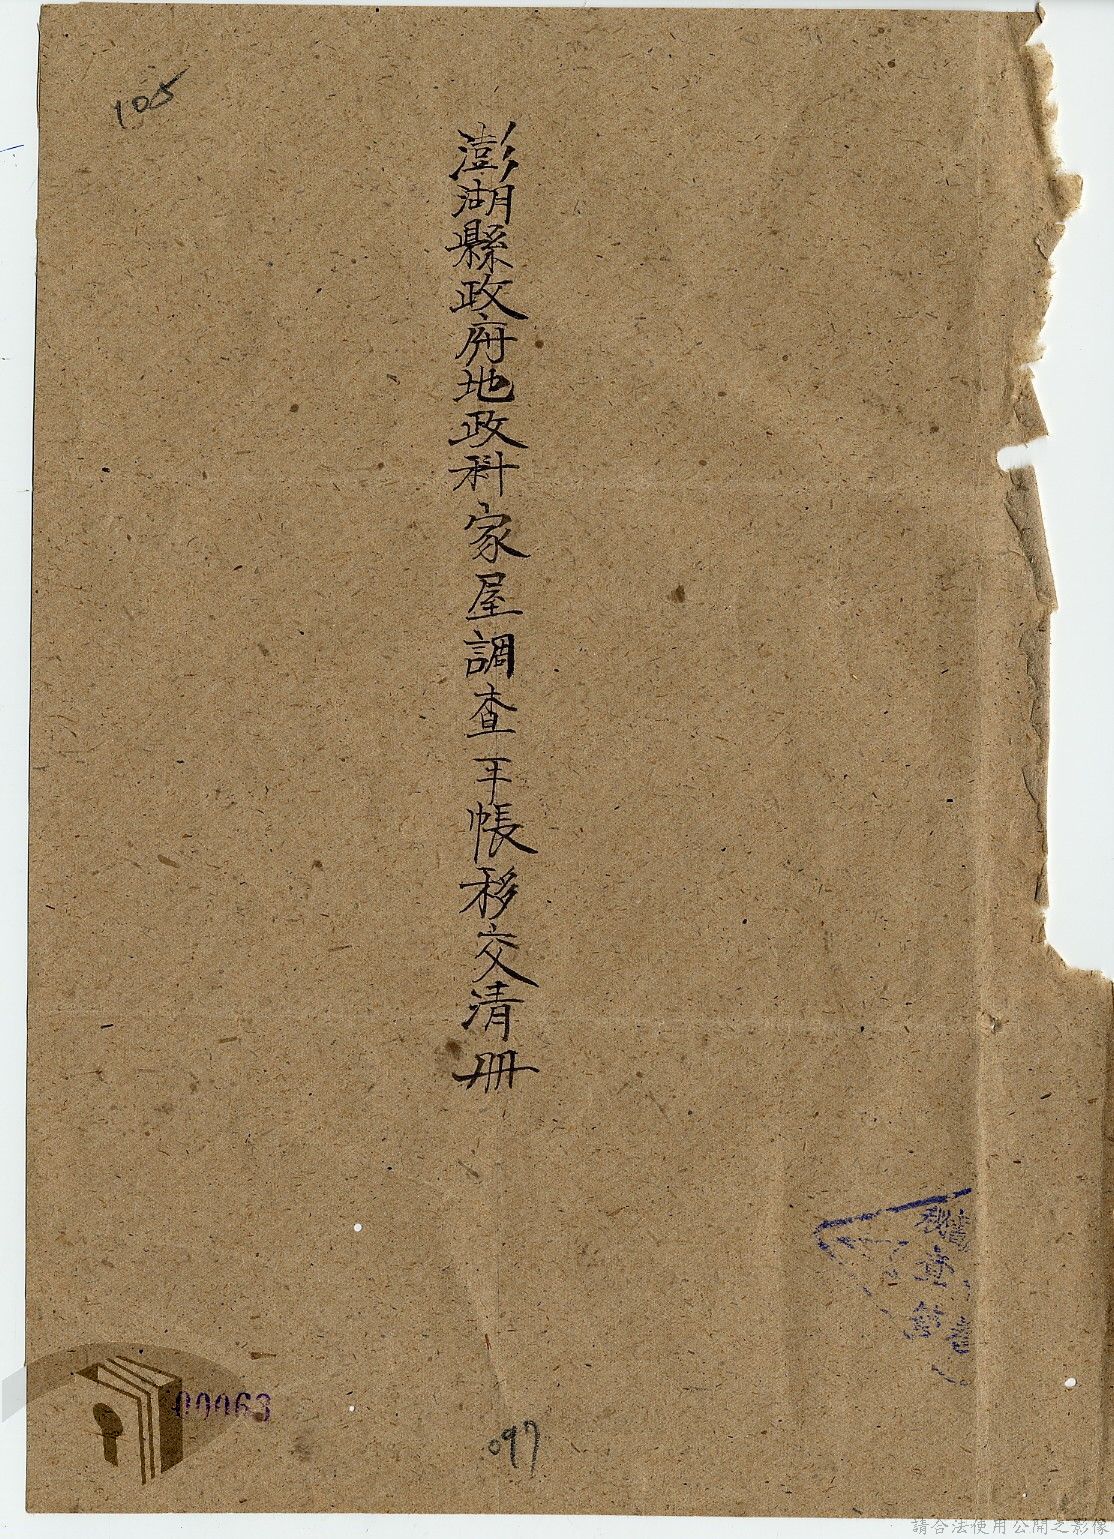 105
澎湖縣政府地政科家屋調查手帳移交清冊
00063
097
請合法使用公開之影像